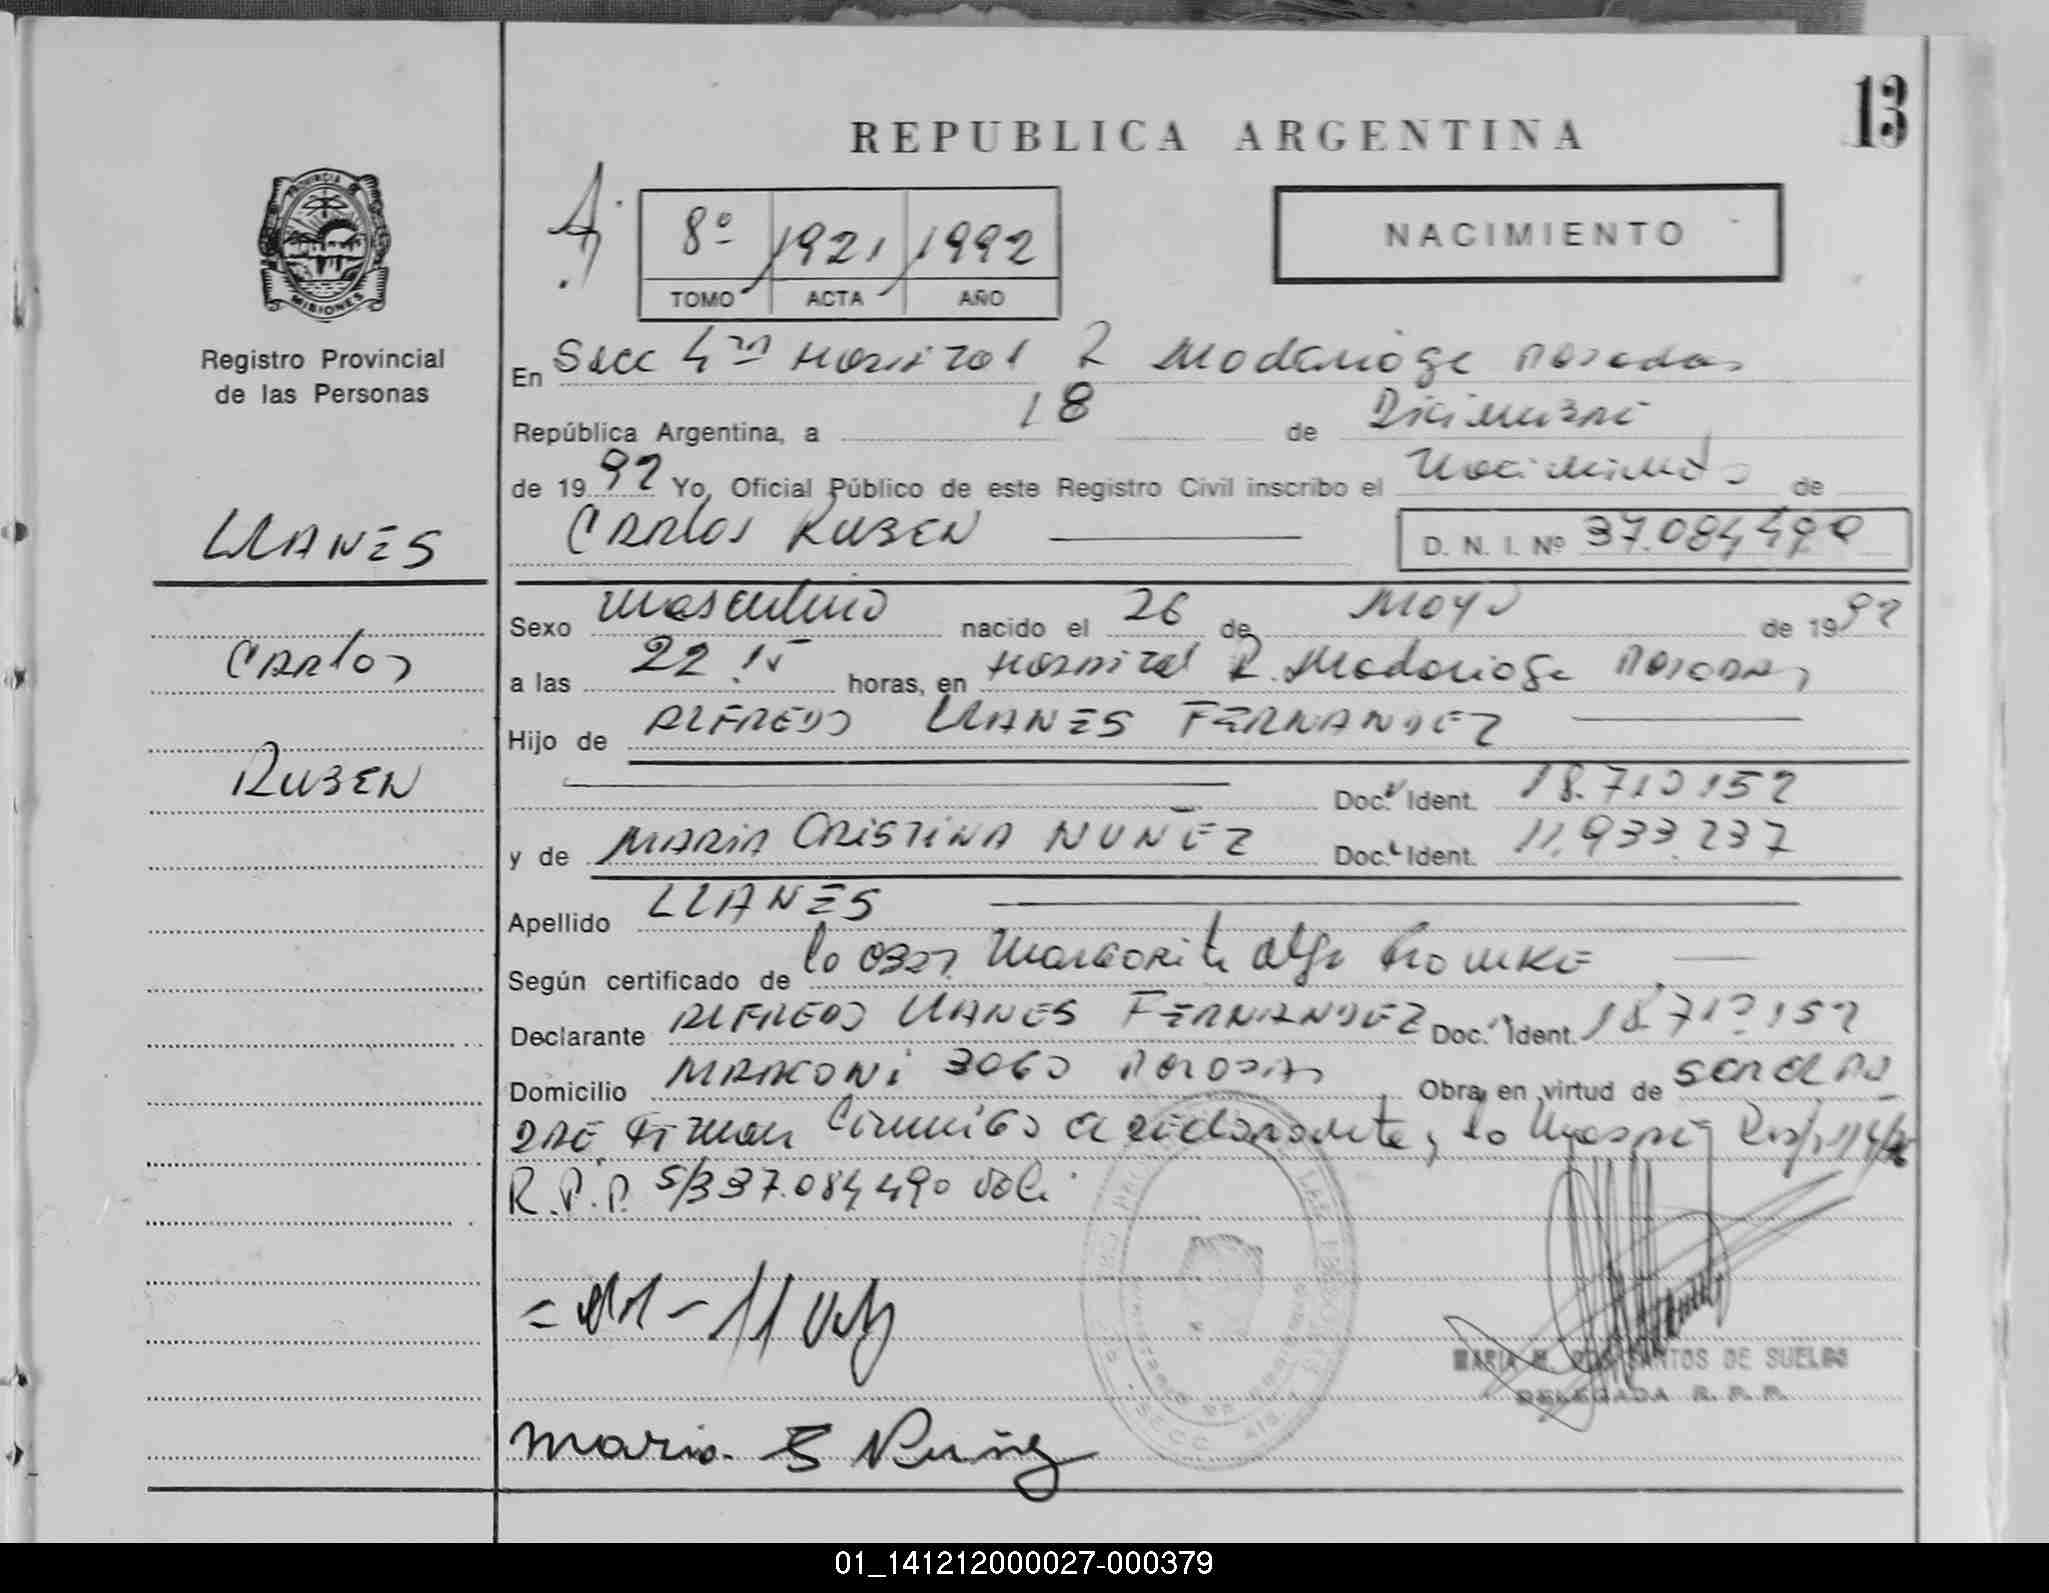 13
REPUBLICA ARGENTINA
NACIMIENTO
8º 1921 1992
TOMO ACTA AÑO
PROVINCIA
MISIONES
Registro Provincial
de las Personas
LLANES
Carlos
RUBEN
En Secc 4ta Hospital R Madariaga Posadas
República Argentina, a 18 de Diciembre
de 1992 Yo, Oficial Público de este Registro Civil inscribo el Nacimiento de
Carlos RUBEN D. N. I. Nº 37.084.490
Sexo masculino nacido el 26 de Mayo de 1992
a las 22.15 horas, en Hospital R. Madariaga Posadas
Hijo de ALFREDO LLANES FERNANDEZ
Doc. Ident. 18.710.152
y de MARIA CRISTINA NUÑEZ Doc. Ident. 11.933.237
Apellido LLANES
Según certificado de la Obst. Margarita Olga
Declarante ALFREDO LLANES FERNANDEZ Doc. Ident. 18.710.152
Domicilio MARCONI 3060 POSADAS Obra en virtud de ser el PA
DRE. Firman conmigo el declarante, la
R.P.P. S/B 37.084.490 vale.
Maria Nuñez
MARIA M. DOS SANTOS DE SUELDO
DELEGADA R. P. P.
01_141212000027-000379